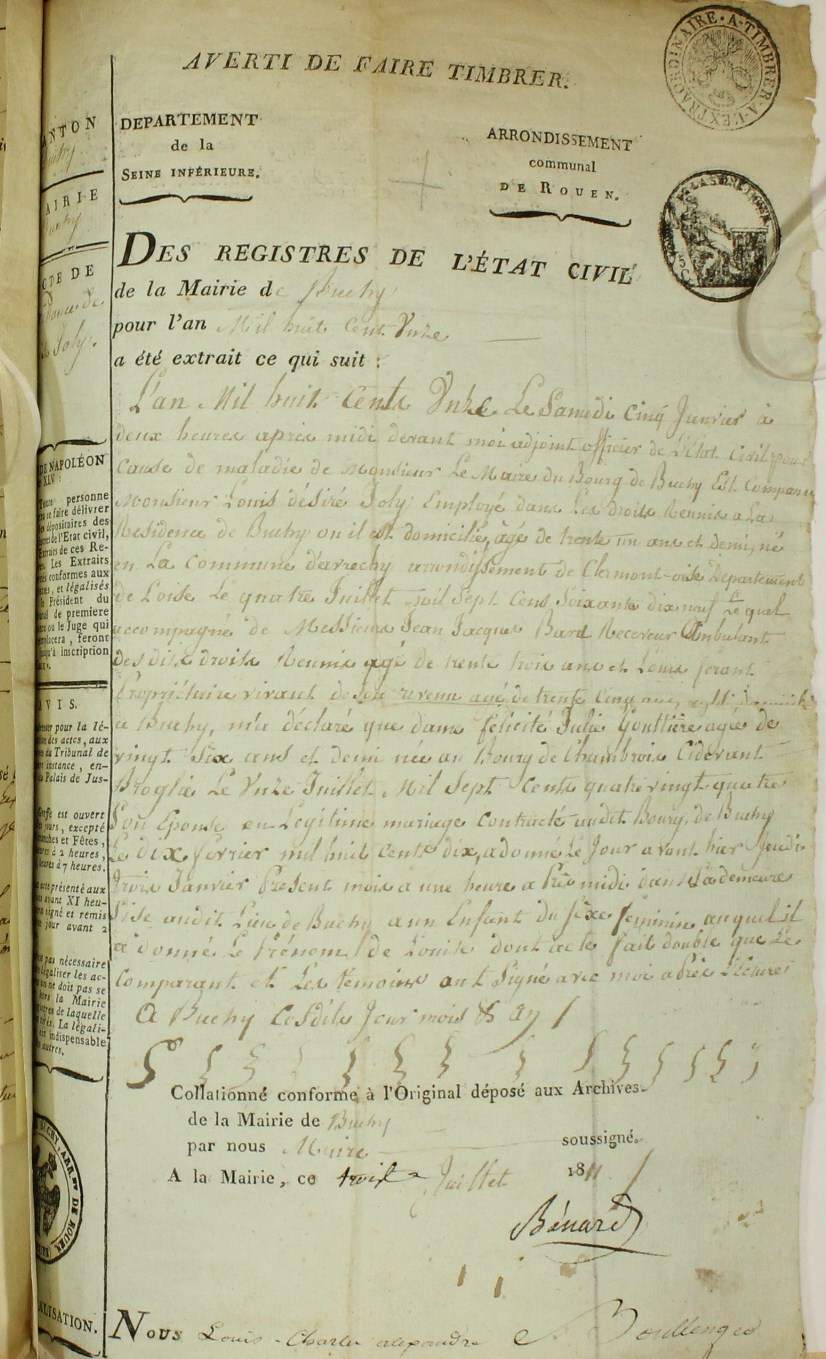 AVERTI DE FAIRE TIMBRER.
EXTRAORDINAIRE • A • TIMBRER • A • L'EXTRAORDINAIRE
DEPARTEMENT
de la
SEINE INFÉRIEURE.
ARRONDISSEMENT
communal
DE ROUEN.
DES REGISTRES DE L'ÉTAT CIVIL
de la Mairie de Buchy
pour l'an Mil huit Cent Unze
a été extrait ce qui suit :
L'an Mil huit Cents Unze Le Samedi Cinq Janvier à
deux heures après midi devant moi adjoint officier de L'Etat Civil pour
Cause de maladie de Monsieur Le Maire du Bourg de Buchy Est Comparu
Monsieur Louis désiré Joly Employé dans Les droits Reunis a La
Residence de Buchy ou il est domicilié, agé de trente un ans et demi, né
en La Commune d'avrechy arrondissement de Clermont-oise Departement
de L'oise Le quatre Juillet mil Sept Cens Soixante dix neuf Le quel
accompagné de Messieurs Jean Jacques Bard Receveur Ambulant
des dits droits Reunis agé de trente trois ans et Louis ferant
Propriétaire vivant de son revenu agé de trente Cinq ans,
a Buchy, m'a déclaré que dame félicité Julie Gouttiere agée de
vingt Six ans et demi née au Bourg de Chambrois Cidevant
Broglie Le Unze Juillet Mil Sept Cents quatre vingt quatre
Son Epouse en Legitime mariage Contracté audit Bourg de Buchy
Le dix fevrier mil huit Cents dix, a donné Le Jour avant hier Jeudi
trois Janvier Present mois a une heure après midi dans Sa demeure
Sise audit Lieu de Buchy a un Enfant du Sexe feminin auquel il
a donné Le Prénom de Louise dont acte fait double que Le
Comparant et Les temoins ont Signé avec moi après Lecture
A Buchy Cesdits Jour mois & an
Collationné conforme à l'Original déposé aux Archives
de la Mairie de Buchy
par nous Maire soussigné.
A la Mairie, ce trois Juillet 1811
Bénard
NOUS Louis Charles alexandre Boullenger
ANTON
Buchy
AIRIE
Buchy
CTE DE
Joly.
DE NAPOLÉON
XLV :
personne
se faire délivrer
dépositaires des
de l'Etat civil,
Extraits de ces Re-
Les Extraits
conformes aux
et légalisés
Président du
de premiere
ou le Juge qui
placera, feront
qu'à inscription
VIS.
pour la lé-
des actes, aux
du Tribunal de
instance, en-
Palais de Jus-
est ouvert
jours, excepté
Dimanches et Fêtes,
heures à 2 heures,
heures à 7 heures.
présenté aux
avant XI heu-
signé et remis
jour avant 2
pas nécessaire
légaliser les ac-
on ne doit pas se
la Mairie
de laquelle
La légali-
indispensable
autres.
BUCHY, ARR.NT DE ROUEN
ALISATION.